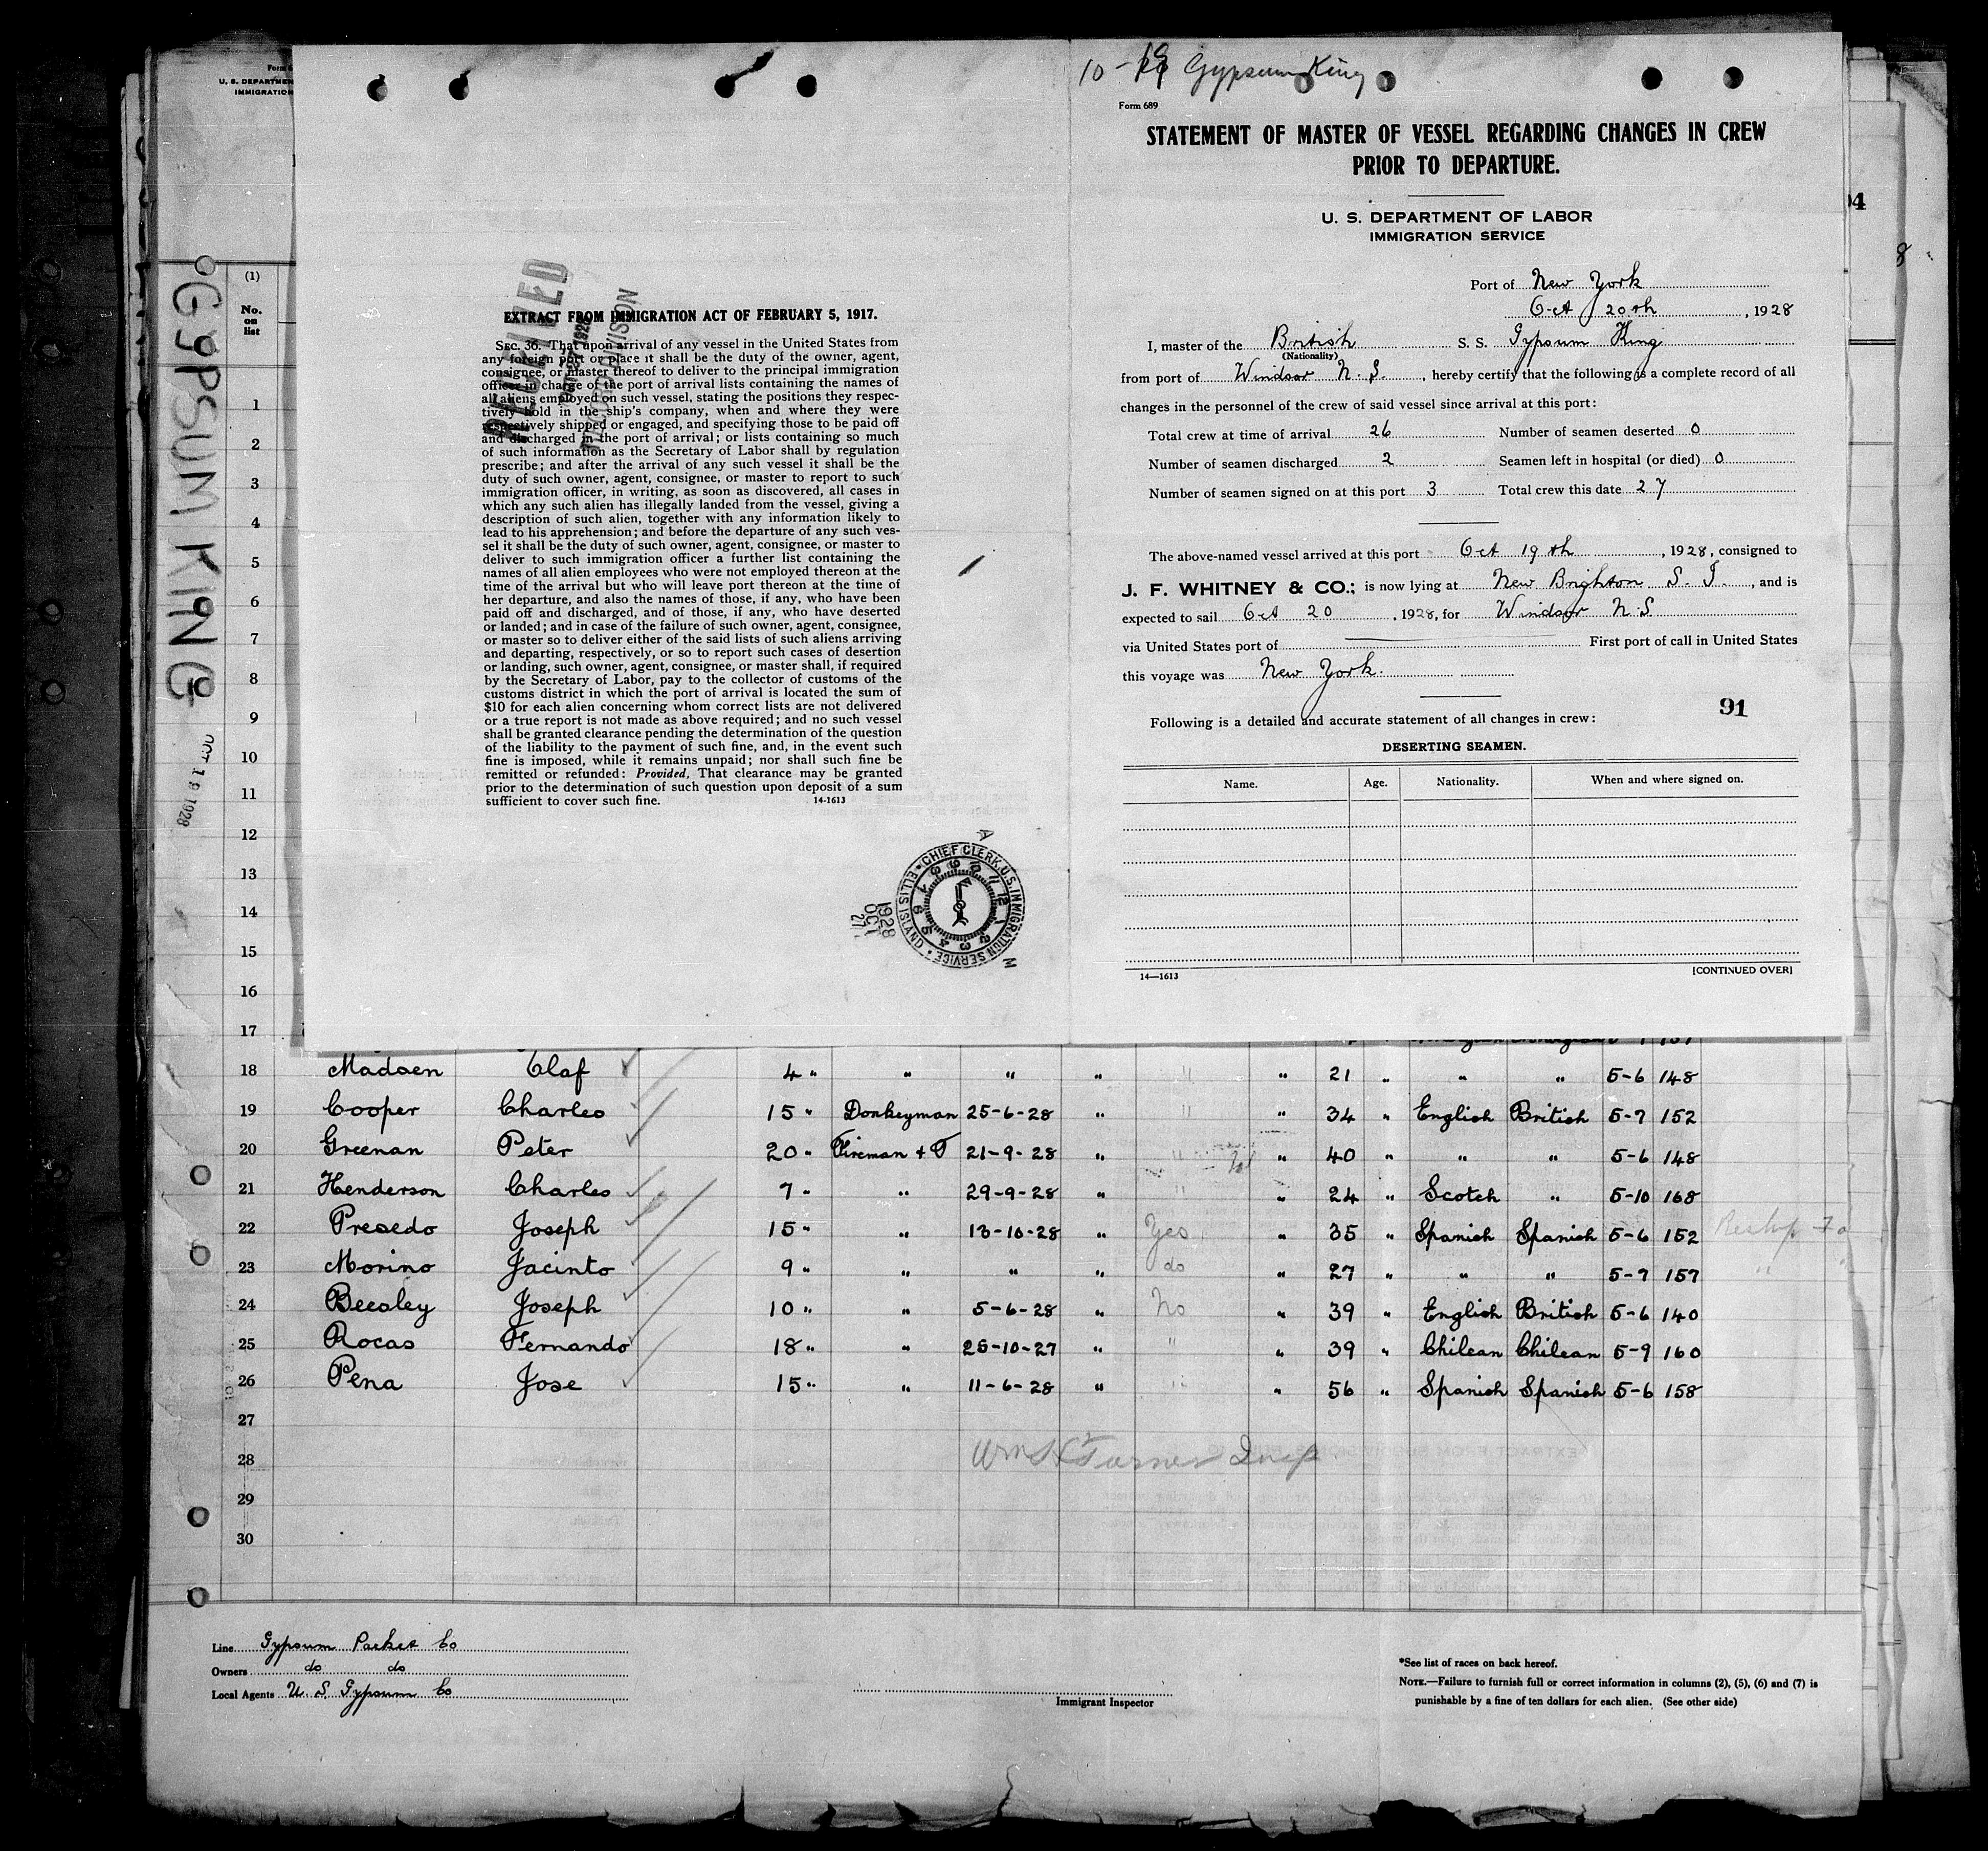 Form 6
U. S. DEPARTMEN
IMMIGRATION
GYPSUM KING
OCT 19 1928
(1)
No.
on
list
1
2
3
4
5
6
7
8
9
10
11
12
13
14
15
16
17
EXTRACT FROM IMMIGRATION ACT OF FEBRUARY 5, 1917.
SEC. 36. That upon arrival of any vessel in the United States from
any foreign port or place it shall be the duty of the owner, agent,
consignee, or master thereof to deliver to the principal immigration
officer in charge of the port of arrival lists containing the names of
all aliens employed on such vessel, stating the positions they respec-
tively hold in the ship's company, when and where they were
respectively shipped or engaged, and specifying those to be paid off
and discharged in the port of arrival; or lists containing so much
of such information as the Secretary of Labor shall by regulation
prescribe; and after the arrival of any such vessel it shall be the
duty of such owner, agent, consignee, or master to report to such
immigration officer, in writing, as soon as discovered, all cases in
which any such alien has illegally landed from the vessel, giving a
description of such alien, together with any information likely to
lead to his apprehension; and before the departure of any such ves-
sel it shall be the duty of such owner, agent, consignee, or master to
deliver to such immigration officer a further list containing the
names of all alien employees who were not employed thereon at the
time of the arrival but who will leave port thereon at the time of
her departure, and also the names of those, if any, who have been
paid off and discharged, and of those, if any, who have deserted
or landed; and in case of the failure of such owner, agent, consignee,
or master so to deliver either of the said lists of such aliens arriving
and departing, respectively, or so to report such cases of desertion
or landing, such owner, agent, consignee, or master shall, if required
by the Secretary of Labor, pay to the collector of customs of the
customs district in which the port of arrival is located the sum of
$10 for each alien concerning whom correct lists are not delivered
or a true report is not made as above required; and no such vessel
shall be granted clearance pending the determination of the question
of the liability to the payment of such fine, and, in the event such
fine is imposed, while it remains unpaid; nor shall such fine be
remitted or refunded: Provided, That clearance may be granted
prior to the determination of such question upon deposit of a sum
sufficient to cover such fine. 14-1613
CHIEF CLERK, U.S. IMMIGRATION SERVICE
ELLIS ISLAND
1928
OCT
27
10-19 Gypsum King
Form 689
STATEMENT OF MASTER OF VESSEL REGARDING CHANGES IN CREW
PRIOR TO DEPARTURE.
U. S. DEPARTMENT OF LABOR
IMMIGRATION SERVICE
Port of New York
Oct 20th, 1928
I, master of the British S. S. Gypsum King
(Nationality)
from port of Windsor N. S., hereby certify that the following is a complete record of all
changes in the personnel of the crew of said vessel since arrival at this port:
Total crew at time of arrival 26 Number of seamen deserted 0
Number of seamen discharged 2 Seamen left in hospital (or died) 0
Number of seamen signed on at this port 3 Total crew this date 27
The above-named vessel arrived at this port Oct 19th, 1928, consigned to
J. F. WHITNEY & CO.; is now lying at New Brighton S. I., and is
expected to sail Oct 20, 1928, for Windsor N.S.
via United States port of First port of call in United States
this voyage was New York.
91
Following is a detailed and accurate statement of all changes in crew:
DESERTING SEAMEN.
Name. Age. Nationality. When and where signed on.
14—1613 [CONTINUED OVER]
18 Madsen Olaf 4 " " " " " " 21 " " " 5-6 148
19 Cooper Charles 15 " Donkeyman 25-6-28 " " " 34 " English British 5-7 152
20 Greenan Peter 20 " Fireman + T 21-9-28 " " " 40 " " " 5-6 148
21 Henderson Charles 7 " " 29-9-28 " " " 24 " Scotch " 5-10 168
22 Presedo Joseph 15 " " 13-10-28 " Yes " 35 " Spanish Spanish 5-6 152
23 Morino Jacinto 9 " " " " do " 27 " " " 5-7 157
24 Beesley Joseph 10 " " 5-6-28 " No " 39 " English British 5-6 140
25 Rocas Fernando 18 " " 25-10-27 " " " 39 " Chilean Chilean 5-9 160
26 Pena Jose 15 " " 11-6-28 " " " 56 " Spanish Spanish 5-6 158
27
28 Wm H Turner Insp
29
30
Line Gypsum Packet Co
Owners do do
Local Agents U. S. Gypsum Co
Immigrant Inspector
*See list of races on back hereof.
NOTE.—Failure to furnish full or correct information in columns (2), (5), (6) and (7) is
punishable by a fine of ten dollars for each alien. (See other side)